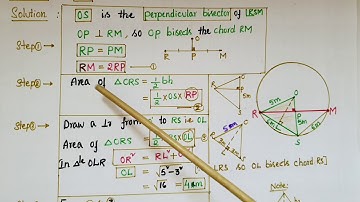 Solution:
OS is the Perpendicular bisector of RM
OP ⊥ RM, so OP bisects the chord RM
Step①
RP = PM
RM = 2RP —①
O
R P M
Step②
Area of △ORS = 1/2 bh
= 1/2 × OS × RP —②
Step③
Draw a ⊥r from O to RS i.e OL
Area of △ORS = 1/2
In △le OLR
OR² = RL² + O
OL = √5²-3²
= √16 = 4cm
LRS so OL bisects chord RS]
Note:
5m
O
P
R M
5m
S
6m
L